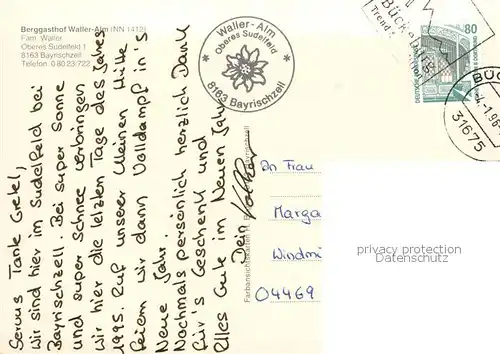 Berggasthof Waller-Alm (NN 1412)
Fam. Waller
Oberes Sudelfeld 1
8163 Bayrischzell
Telefon 0 80 23/722
Waller-Alm
Oberes Sudelfeld
8163 Bayrischzell
Servus Tante Gretel,
Wir sind hier im Sudelfeld bei
Bayrischzell. Bei super Sonne
und super Schnee verbringen
wir hier die letzten Tage des Jahres
1995. Auf unserer kleinen Hütte
feiern wir dann Volldampf in's
Neue Jahr.
Nochmals persönlich herzlich Dank
für's Geschenk und
Alles Gute im Neuen Jahr
Dein Volker
80
DEUTSCHE
Trend
31675
An Frau
Marga
Windmü
04469
privacy protection
Datenschutz